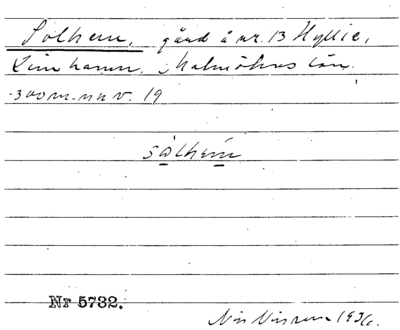 Solhem, gård å nr. 13 Hyllie,
Limhamn. Malmöhus län.
300 m. nnv. 19
sọlhem
Nr 5732.
Nils Nilsson 1936.